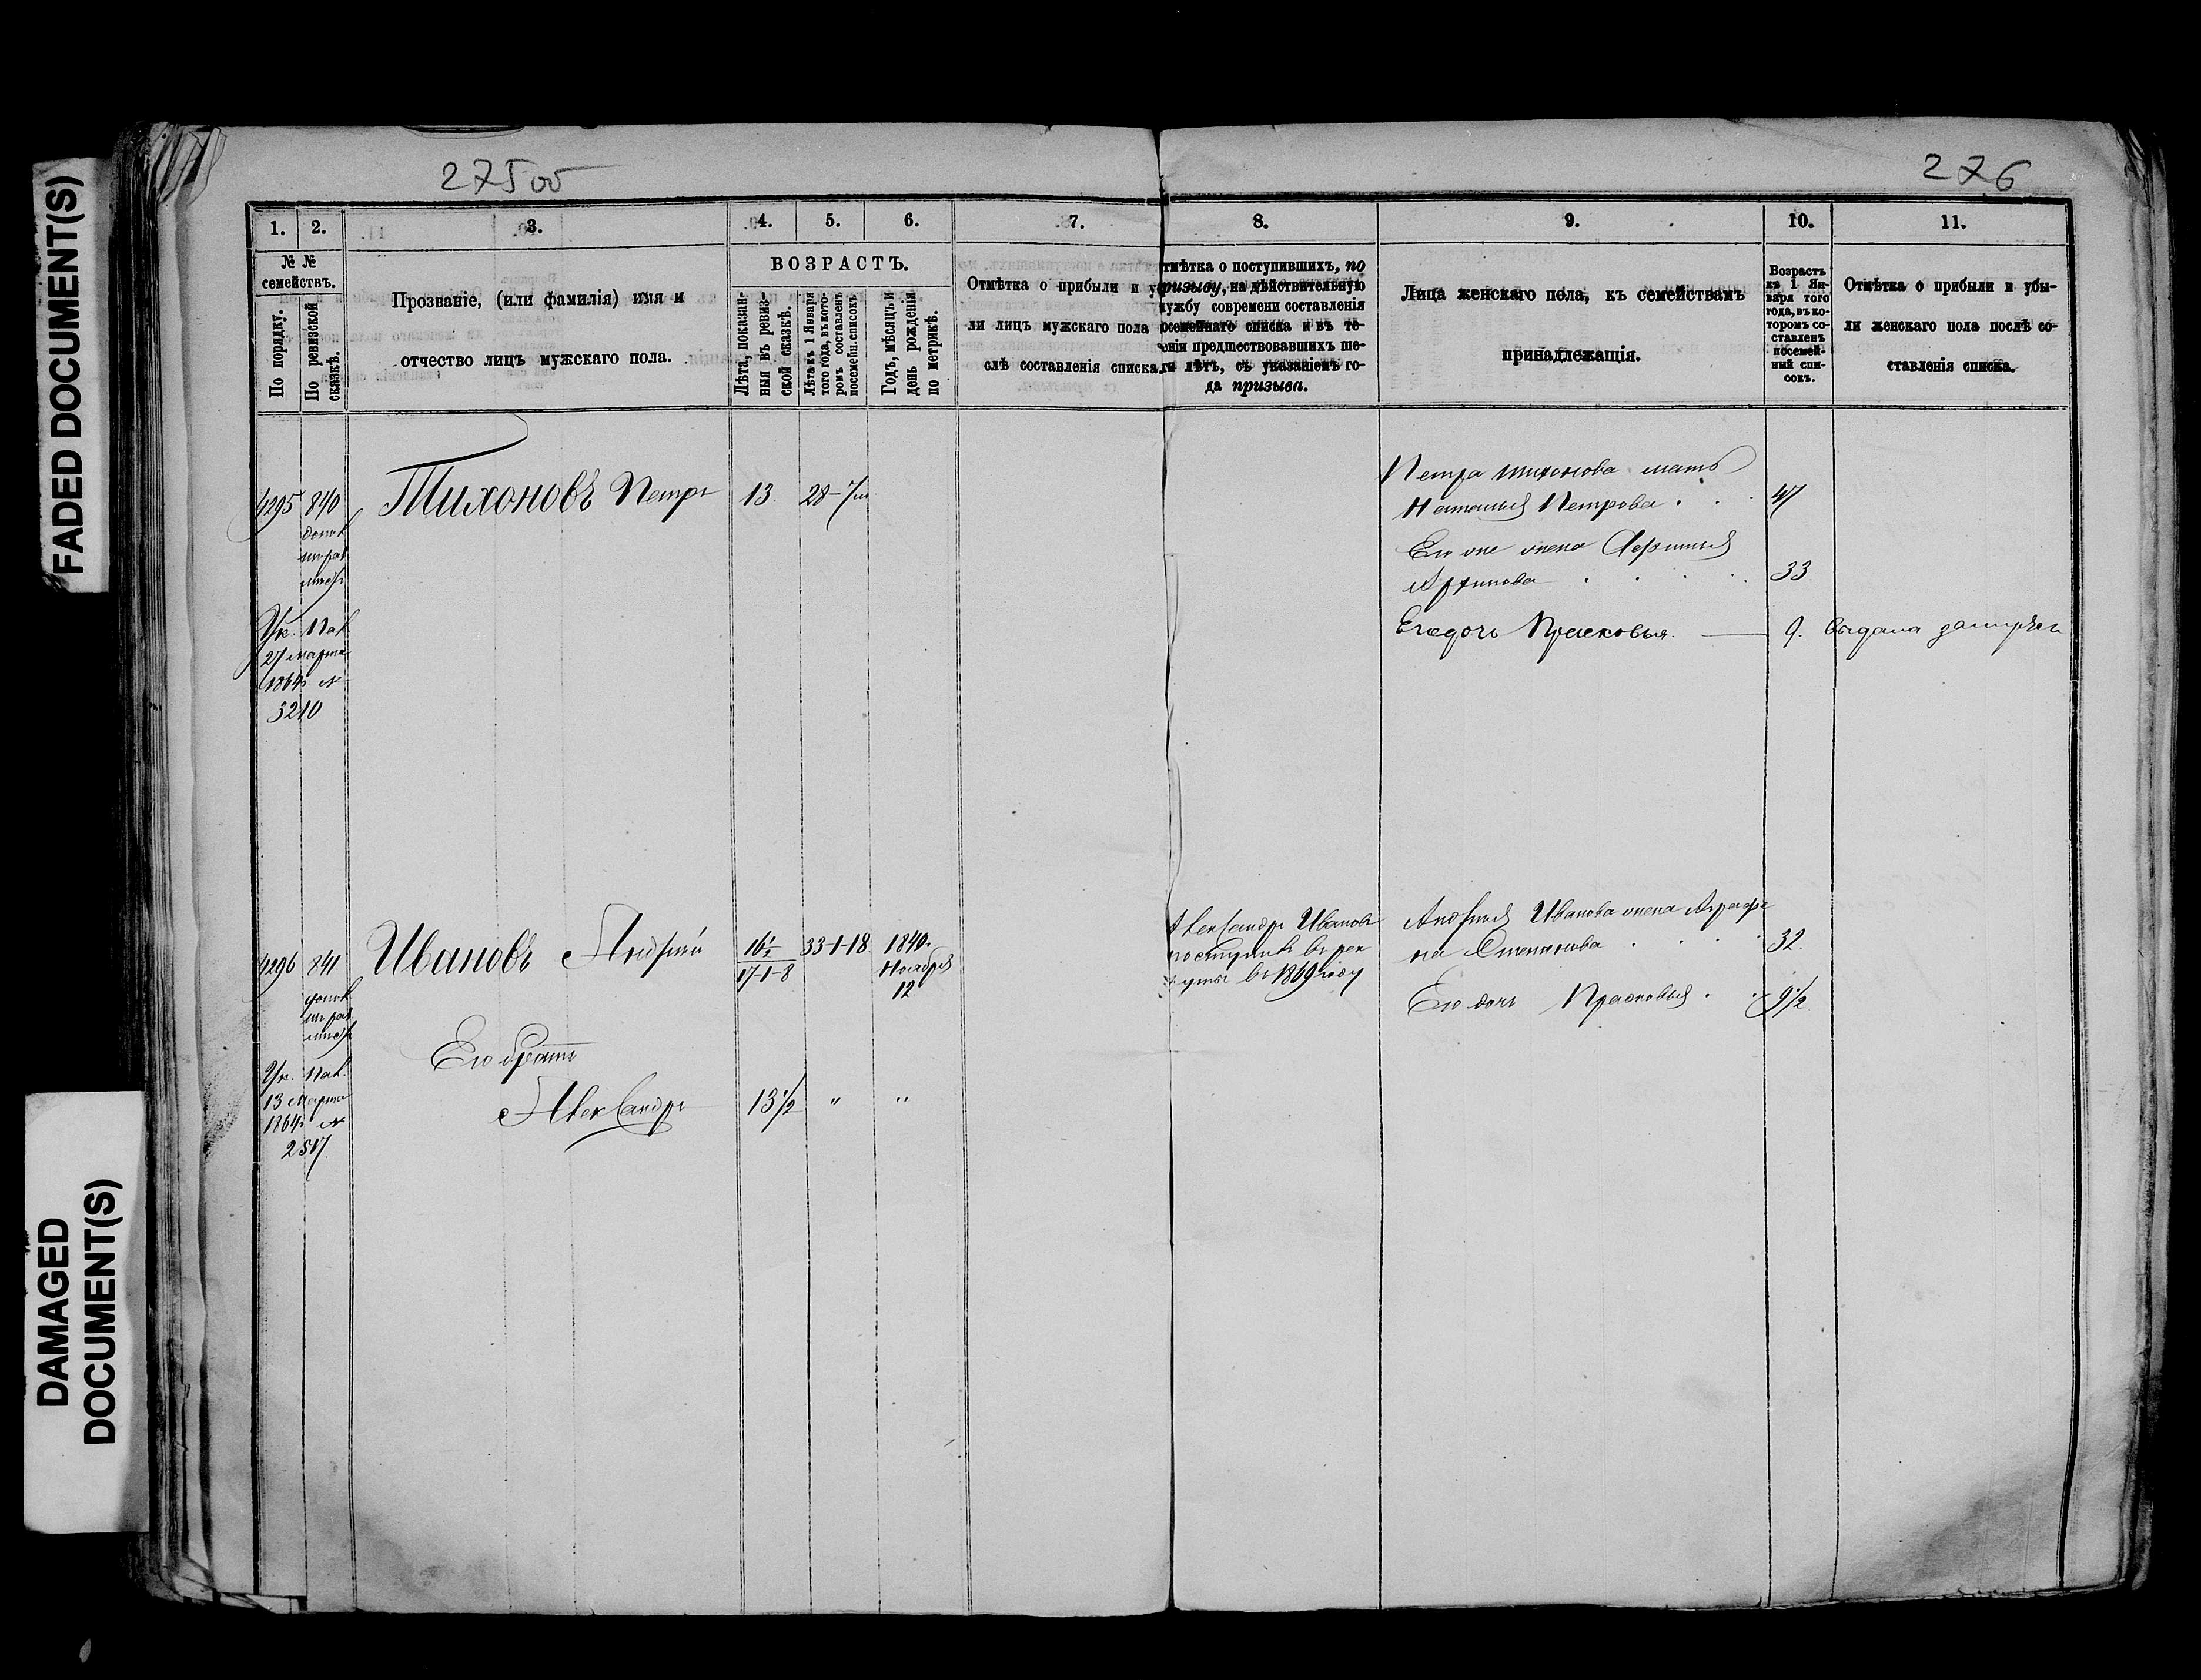 FADED DOCUMENT(S)
DAMAGED
DOCUMENT(S)
275об
276
1.
2.
3.
4.
5.
6.
7.
8.
9.
10.
11.
№ №
семействъ.
По порядку.
По ревизской
сказкѣ.
Прозваніе, (или фамилія) имя и
отчество лицъ мужскаго пола.
ВОЗРАСТЪ.
Лѣта, показан-
ныя въ ревиз-
ской сказкѣ.
Лѣта къ 1 Января
того года, въ кото-
ромъ составленъ
посемейн. списокъ.
Годъ, мѣсяцъ и
день рожденія
по метрикѣ.
Отмѣтка о прибыли и у
ли лицъ мужскаго пола
слѣ составленія списка.
тмѣтка о поступившихъ, по
ризыву, на дѣйствительную
лужбу современи составленія
осемейнаго списка и въ те-
еніи предшествовавшихъ ше-
ти лѣтъ, съ указаніемъ го-
да призыва.
Лица женскаго пола, къ семействамъ
принадлежащія.
Возрастъ
къ 1 Ян-
варя того
года, въ ко-
торомъ со-
ставленъ
посемей-
ный спи-
сокъ.
Отмѣтка о прибыли и убы-
ли женскаго пола послѣ со-
ставленія списка.
4295
840
Тихоновъ Петръ
13.
28-7м
Петра Тихонова мать
Наталья Петрова
47
Его же жена
33
Его дочь Прасковья.
9.
выдана замужъ
Ук. Пал.
27 марта
1864г №
3210
4296
841
Ивановъ Андрей
16½
17-1-8
33-1-18
1840.
Ноября
12
Александръ Ивановъ
поступилъ въ рек
руты въ 1869 году
Андрея Иванова жена Аграфе
на Степанова
32.
Его дочь Прасковья
9½.
Его братъ
Александръ
13½
"
"
Ук. Пал.
13 Марта
1864г №
2517.